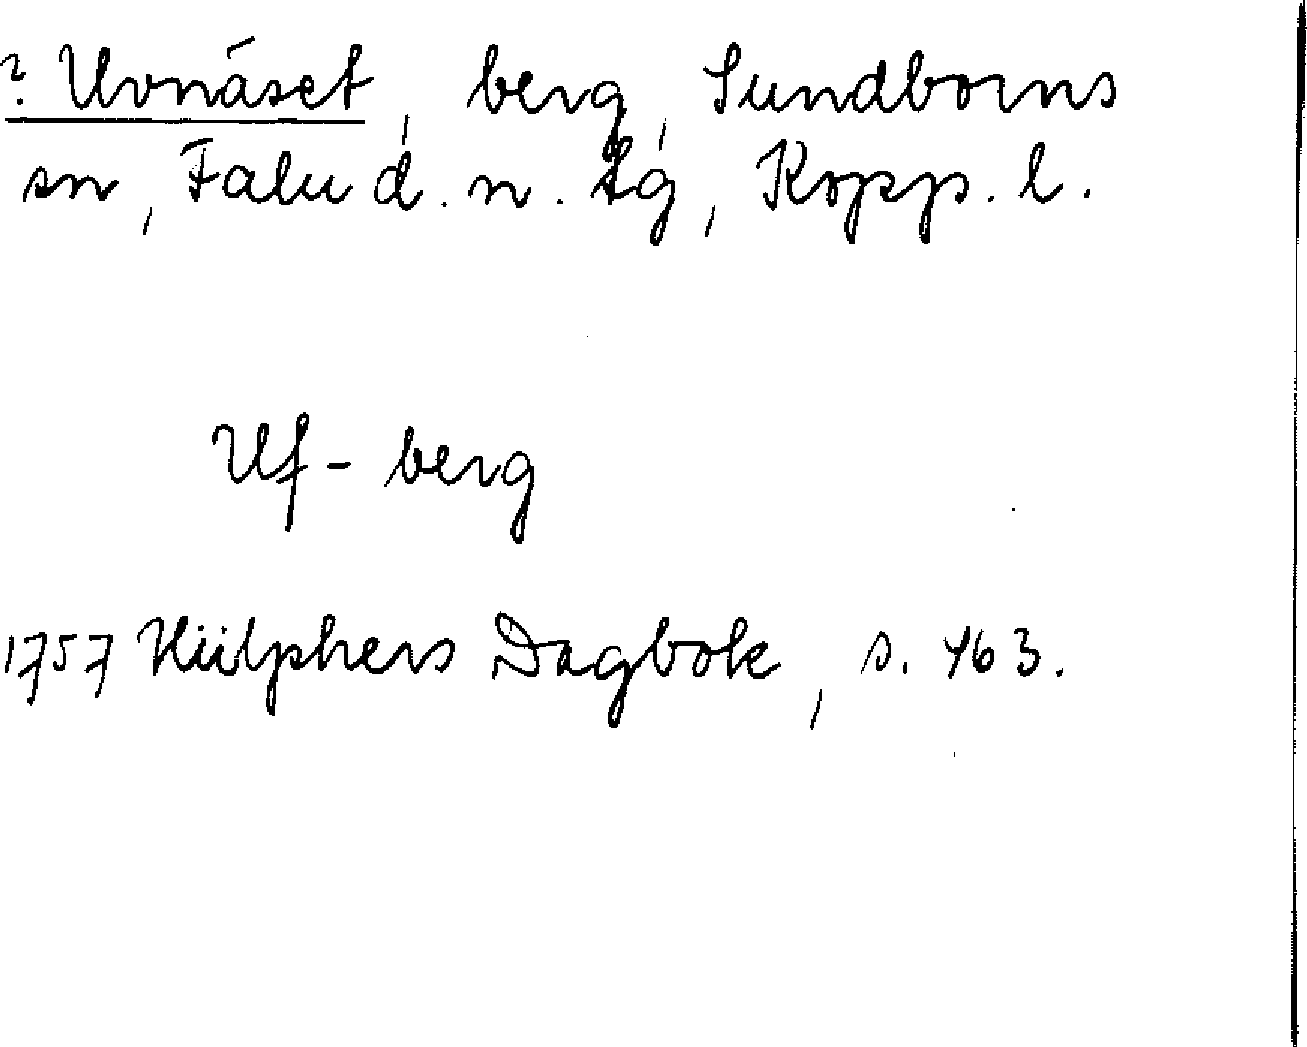 ? Uvnäset, berg, Sundborns
sn, Falu d. n. lg, Kopp. l.
Uf-berg
1757 Hülphers Dagbok, s. 463.